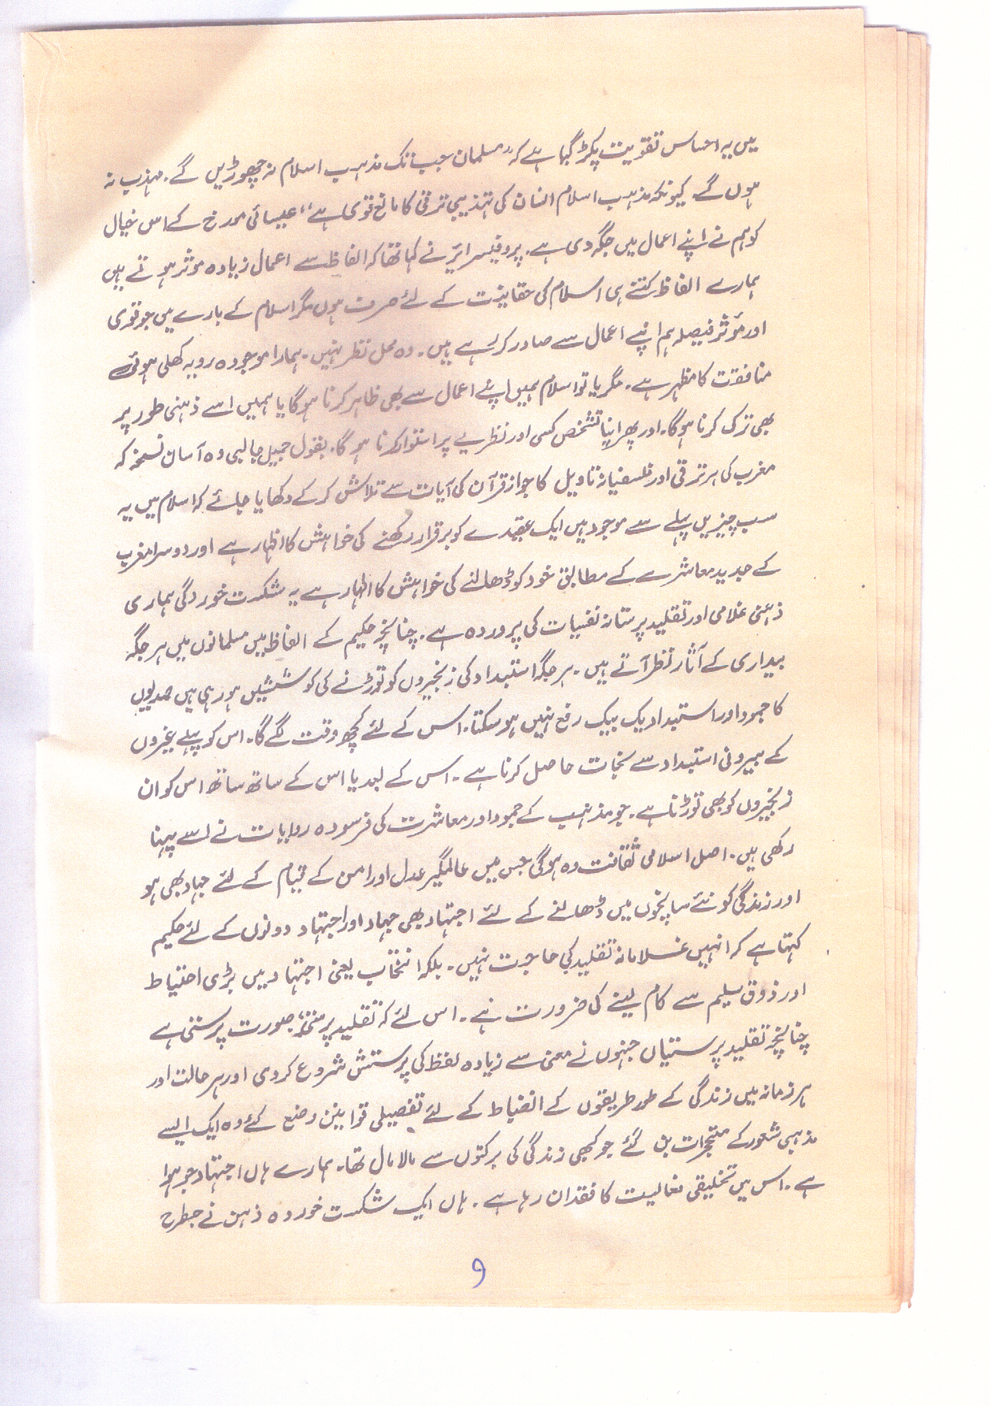 میں یہ احساس تقویت پکڑ گیا ہے کہ "مسلمان جب تک مذہب اسلام نہ چھوڑیں گے۔ مہذب نہ
ہوں گے۔ کیونکہ مذہب اسلام انسان کی تہذیبی ترقی کا مانع قوی ہے" عیسائی مورخ کے اس خیال
کو ہم نے اپنے اعمال میں جگہ دی ہے۔ پروفیسر ائیر نے کہا تھا کہ الفاظ سے اعمال زیادہ موثر ہوتے ہیں
ہمارے الفاظ کتنے ہی اسلام کی حقانیت کے لئے صرف ہوں مگر اسلام کے بارے میں جو قوی
اور مؤثر فیصلہ ہم اپنے اعمال سے صادر کر رہے ہیں۔ وہ محل نظر نہیں۔ ہمارا موجودہ رویہ کھلی ہوئی
منافقت کا مظہر ہے۔ مگر یا تو اسلام ہمیں اپنے اعمال سے بھی ظاہر کرنا ہوگا یا ہمیں اسے ذہنی طور پر
بھی ترک کرنا ہوگا۔ اور پھر اپنا تشخص کسی اور نظریے پر استوار کرنا ہوگا۔ بقول جمیل جالبی وہ آسان نسخہ کہ
مغرب کی ہر ترقی اور فلسفیانہ تاویل کا جواز قرآن کی آیات سے تلاش کر کے دکھایا جائے کہ اسلام میں یہ
سب چیزیں پہلے سے موجود ہیں ایک عقیدے کو برقرار رکھنے کی خواہش کا اظہار ہے اور دوسرا مغرب
کے جدید معاشرے کے مطابق خود کو ڈھالنے کی خواہش کا اظہار ہے یہ شکست خوردگی ہماری
ذہنی غلامی اور تقلید پرستانہ نفسیات کی پروردہ ہے۔ چنانچہ حکیم کے الفاظ میں مسلمانوں میں ہر جگہ
بیداری کے آثار نظر آتے ہیں۔ ہر جگہ استبداد کی زنجیروں کو توڑنے کی کوششیں ہو رہی ہیں صدیوں
کا جمود اور استبداد یک بیک رفع نہیں ہو سکتا۔ اس کے لئے کچھ وقت لگے گا۔ اس کو پہلے غیروں
کے بیرونی استبداد سے نجات حاصل کرنا ہے۔ اس کے بعد یا اس کے ساتھ ساتھ اس کو ان
زنجیروں کو بھی توڑنا ہے۔ جو مذہب کے جمود اور معاشرت کی فرسودہ روایات نے اسے پہنا
رکھی ہیں۔ اصل اسلامی ثقافت وہ ہوگی جس میں عالمگیر عدل اور امن کے قیام کے لئے جہاد بھی ہو
اور زندگی کو نئے سانچوں میں ڈھالنے کے لئے اجتہاد بھی جہاد اور اجتہاد دونوں کے لئے حکیم
کہتا ہے کہ انہیں غلامانہ تقلید کی حاجت نہیں۔ بلکہ انتخاب یعنی اجتہاد میں بڑی احتیاط
اور ذوق سلیم سے کام لینے کی ضرورت ہے۔ اس لئے کہ تقلید پر منتج صورت پرستی ہے
چنانچہ تقلید پرستیاں جنہوں نے معنی سے زیادہ لفظ کی پرستش شروع کر دی اور ہر حالت اور
ہر زمانہ میں زندگی کے طور طریقوں کے انضباط کے لئے تفصیلی قوانین وضع کئے وہ ایک ایسے
مذہبی شعور کے متحجرات بن گئے جو کبھی زندگی کی برکتوں سے مالا مال تھا۔ ہمارے ہاں اجتہاد جو ہوا
ہے۔ اس میں تخلیقی فعالیت کا فقدان رہا ہے۔ ہاں ایک شکست خوردہ ذہن نے جسطرح
9